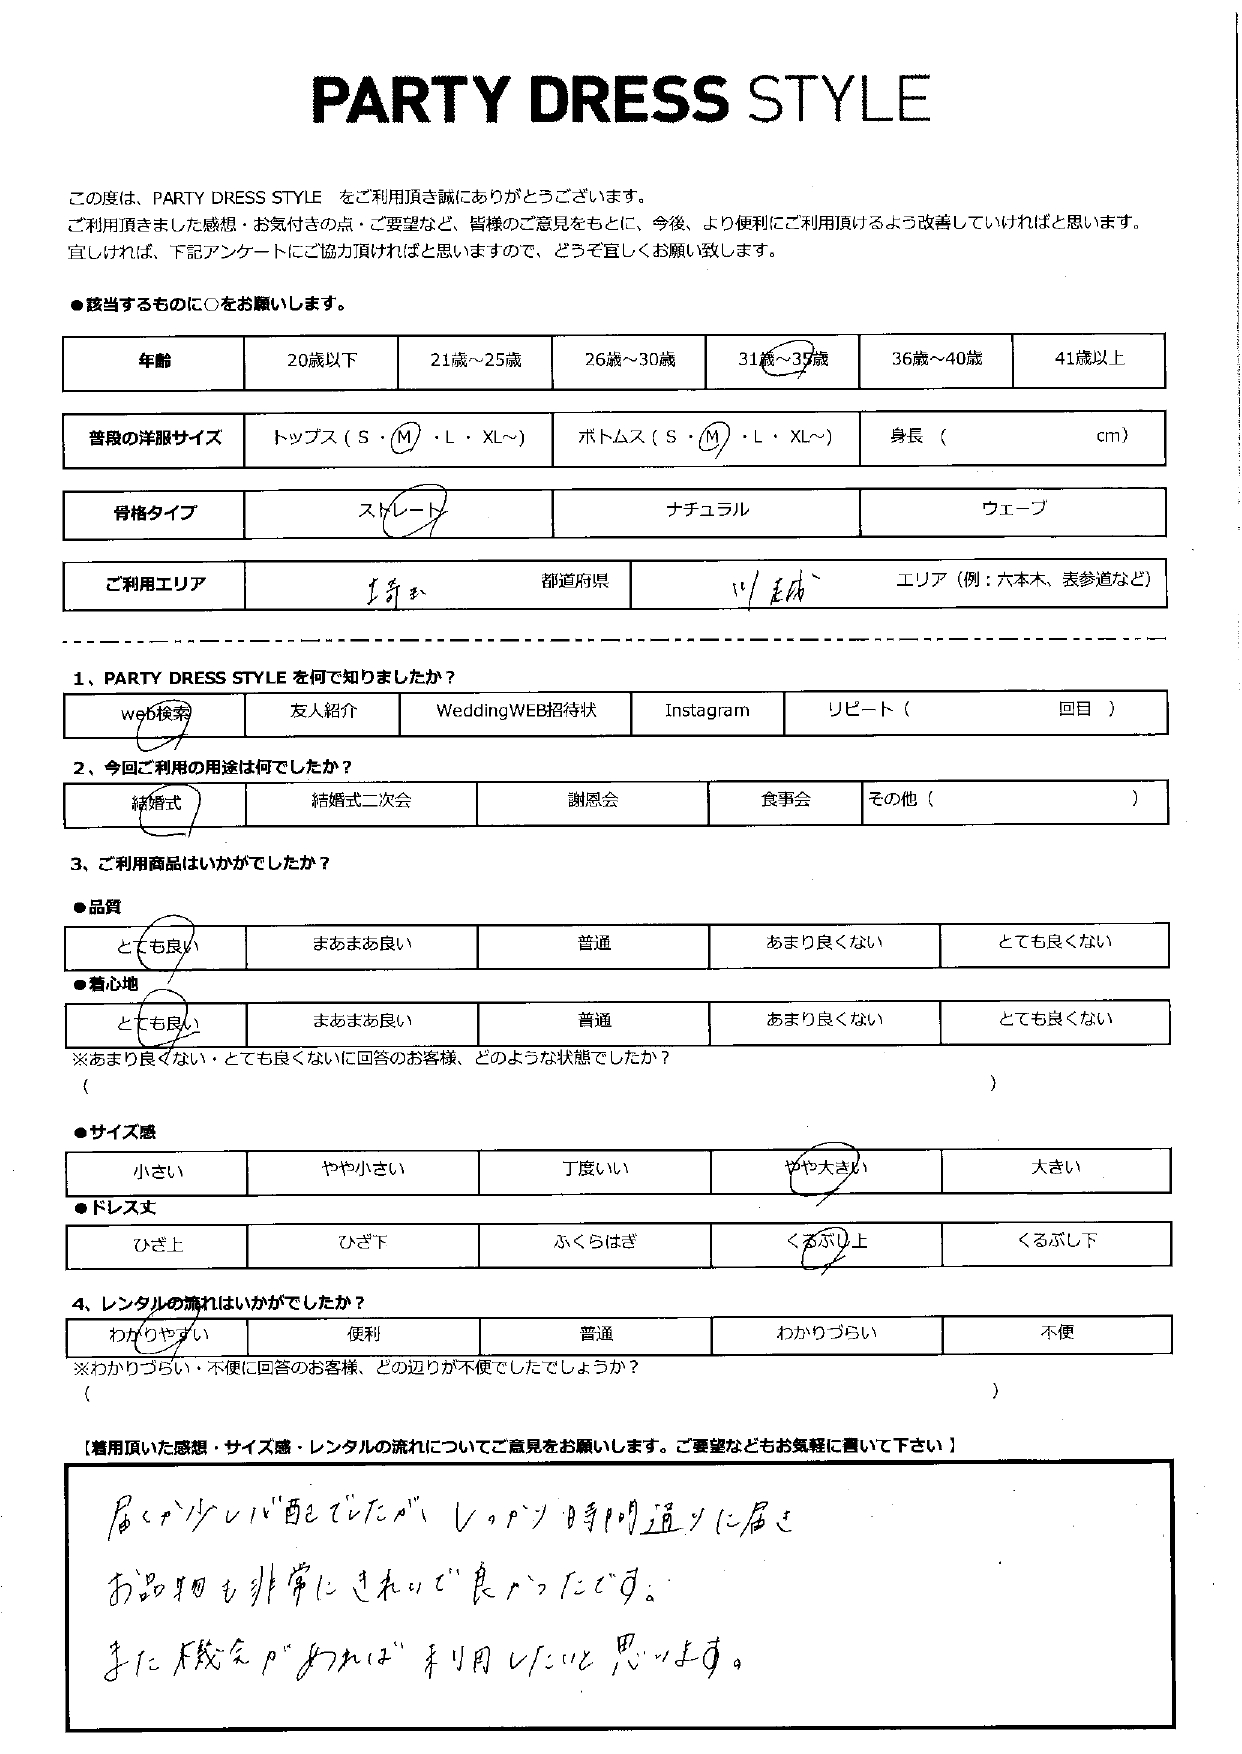 PARTY DRESS STYLE
この度は、PARTY DRESS STYLE をご利用頂き誠にありがとうございます。
ご利用頂きました感想・お気付きの点・ご要望など、皆様のご意見をもとに、今後、より便利にご利用頂けるよう改善していければと思います。
宜しければ、下記アンケートにご協力頂ければと思いますので、どうぞ宜しくお願い致します。
●該当するものに○をお願いします。
年齢 20歳以下 21歳～25歳 26歳～30歳 31歳～35歳 36歳～40歳 41歳以上
普段の洋服サイズ トップス ( S ・ M ・ L ・ XL～) ボトムス ( S ・ M ・ L ・ XL～) 身長 ( cm)
骨格タイプ ストレート ナチュラル ウェーブ
ご利用エリア 埼玉 都道府県 川越 エリア（例：六本木、表参道など）
1、PARTY DRESS STYLE を何で知りましたか？
web検索 友人紹介 WeddingWEB招待状 Instagram リピート ( 回目 )
2、今回ご利用の用途は何でしたか？
結婚式 結婚式二次会 謝恩会 食事会 その他 ( )
3、ご利用商品はいかがでしたか？
●品質
とても良い まあまあ良い 普通 あまり良くない とても良くない
●着心地
とても良い まあまあ良い 普通 あまり良くない とても良くない
※あまり良くない・とても良くないに回答のお客様、どのような状態でしたか？
( )
●サイズ感
小さい やや小さい 丁度いい やや大きい 大きい
●ドレス丈
ひざ上 ひざ下 ふくらはぎ くるぶし上 くるぶし下
4、レンタルの流れはいかがでしたか？
わかりやすい 便利 普通 わかりづらい 不便
※わかりづらい・不便に回答のお客様、どの辺りが不便でしたでしょうか？
( )
【着用頂いた感想・サイズ感・レンタルの流れについてご意見をお願いします。ご要望などもお気軽に書いて下さい】
届くか少し心配でしたが、しっかり時間通りに届き
お品物も非常にきれいで良かったです。
また機会があれば利用したいと思います。